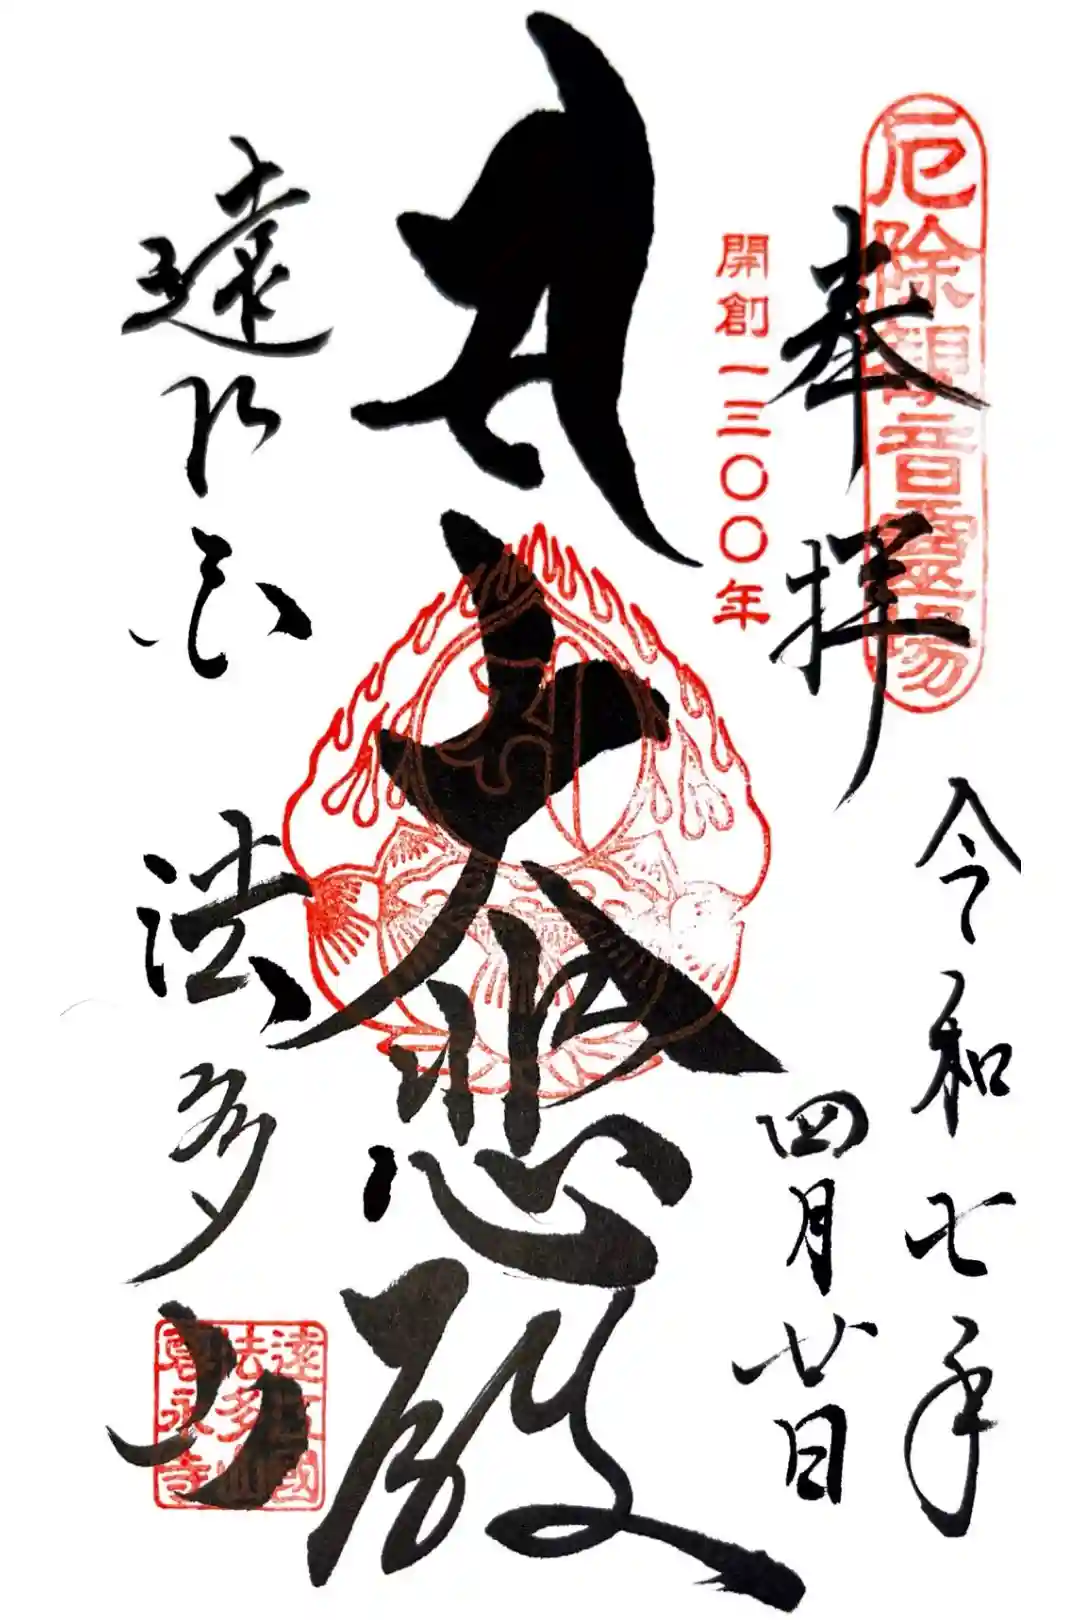 厄除観音霊場
奉拝
開創一三〇〇年
令和七年
四月廿日
𑖭
大悲殿
遠江国
法多山
遠江國
法多山
尊永寺